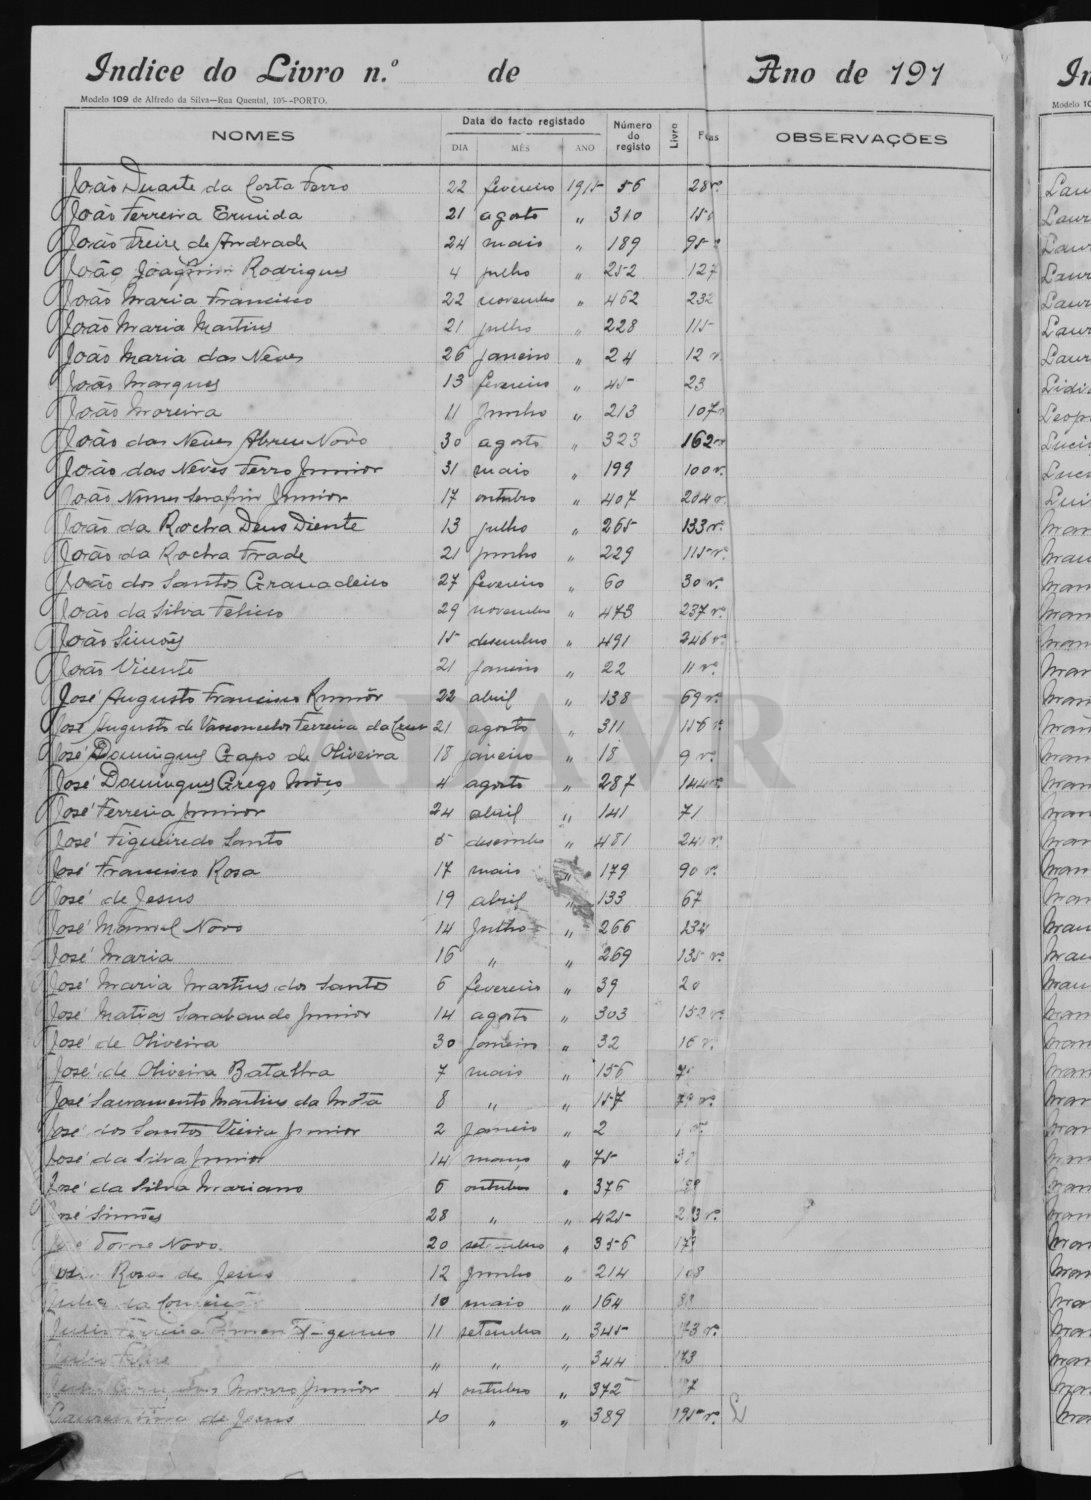 Indice do Livro n.º de Ano de 191
Modelo 109 de Alfredo da Silva—Rua Quental, 105--PORTO.
NOMES Data do facto registado Número do registo Livro Fôas OBSERVAÇÕES
DIA MÊS ANO
João Duarte da Costa Ferro 22 fevereiro 1915 56 28 v.º
João Ferreira Ermida 21 agosto " 310 150
João Freire de Andrade 24 maio " 189 95
João Joaquim Rodrigues 4 julho " 252 127
João Maria Francisco 22 novembro " 462 232
João Maria Martins 21 julho " 228 115
João Maria das Neves 26 janeiro " 24 12 v.
João Marques 13 fevereiro " 45 23
João Moreira 11 junho " 213 107 v
João das Neves Abreu Novo 30 agosto " 323 162 v
João das Neves Ferro Junior 31 maio " 199 100 v.
João Nunes Serafim Junior 17 outubro " 407 204 v.
João da Rocha Deus Diente 13 julho " 265 133 v.º
João da Rocha Frade 21 junho " 229 115 v.º
João dos Santos Granadeiro 27 fevereiro " 60 30 v.
João da Silva Felicio 29 novembro " 473 237 v.º
João Simões 15 desembro " 491 246 v.º
João Vicente 21 janeiro " 22 11 v.º
José Augusto Francisco Junior 22 abril " 138 69 v.º
José Augusto de Vasconcelos Ferreira da Cruz 21 agosto " 311 156 v.
José Domingues Gapo de Oliveira 18 janeiro " 18 9 v.º
José Domingues Grego Môço 4 agosto " 287 144 v.º
José Ferreira Junior 24 abril " 141 71
José Figueiredo Santo 5 desembro " 481 241 v.
José Francisco Rosa 17 maio " 179 90 v.
José de Jesus 19 abril " 133 67
José Manuel Novo 14 Julho " 266 134
José Maria 16 " " 269 135 v.º
José Maria Martins dos Santos 6 fevereiro " 39 20
José Matias Sarabando Junior 14 agosto " 303 152 v.º
José de Oliveira 30 Janeiro " 32 16 v.º
José de Oliveira Batalha 7 maio " 156
José Sacramento Martins da Mota 8 " " 157
José dos Santos Vieira Junior 2 janeiro " 2 1 v.º
José da Silva Junior 14 março " 75 38
José da Silva Mariano 6 outubro " 376 189
José Simões 28 " " 425 213 v.º
José Torre Novo 20 setembro " 356
Rosa de Jesus 12 Junho " 214 108
Julia da Conceição 10 maio " 164
Julio Ferreira 11 setembro " 345 173 v.º
" " " 344 173
Mouro Junior 4 outubro " 372
Laurentina de Jesus 10 " " 389 195 v.º
ADAVR
In
Modelo 10